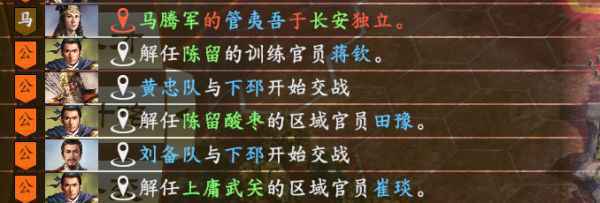 马 马腾军的管夷吾于长安独立。
公 解任陈留的训练官员蒋钦。
公 黄忠队与下邳开始交战
公 解任陈留酸枣的区域官员田豫。
公 刘备队与下邳开始交战
公 解任上庸武关的区域官员崔琰。